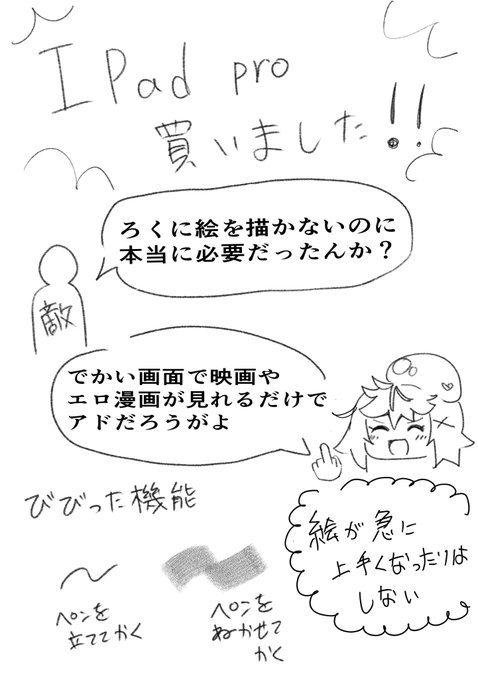 I Pad pro
買いました!!
ろくに絵を描かないのに
本当に必要だったんか？
敵
でかい画面で映画や
エロ漫画が見れるだけで
アドだろうがよ
びびった機能
絵が急に
上手くなったりは
しない
ペンを
立ててかく
ペンを
ねかせて
かく